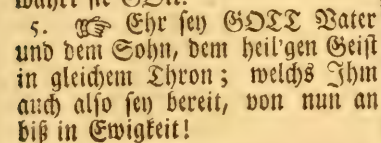 5. ☞ Ehr sey GOTT Vater
und dem Sohn, dem heil'gen Geist
in gleichem Thron; welchs Ihm
auch also sey bereit, von nun an
biß in Ewigkeit!